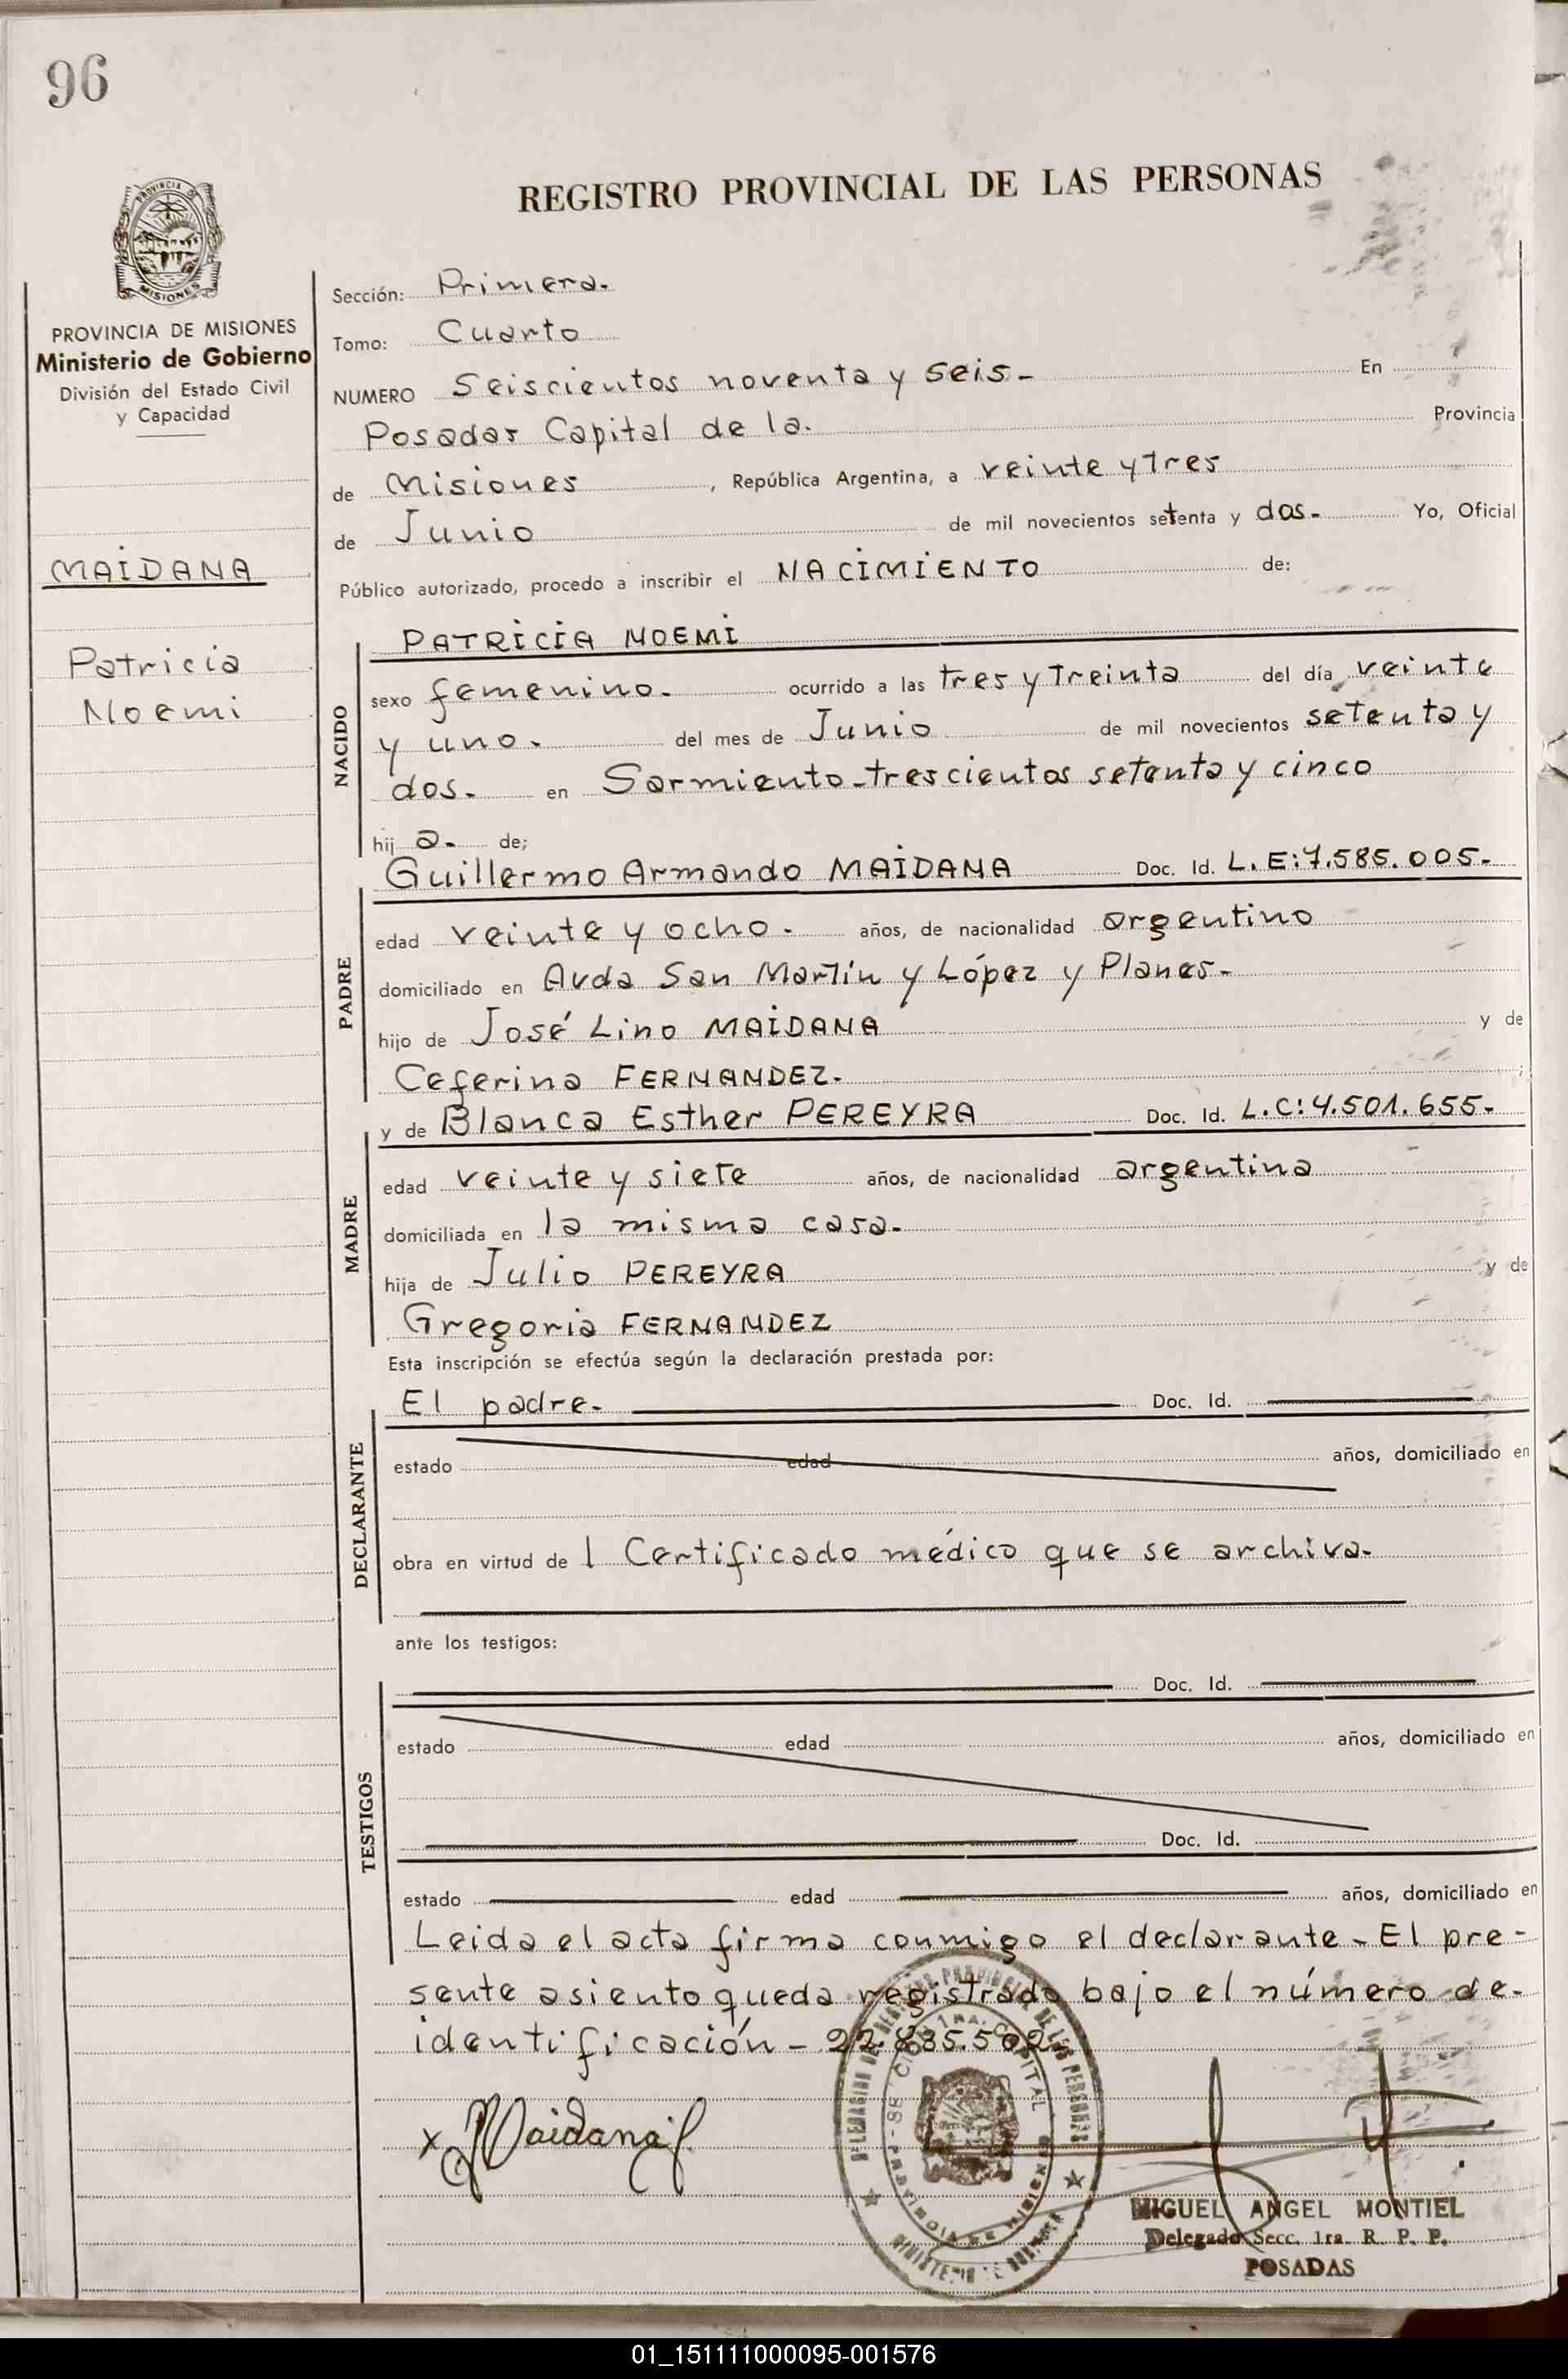 96
REGISTRO PROVINCIAL DE LAS PERSONAS
PROVINCIA
MISIONES
PROVINCIA DE MISIONES
Ministerio de Gobierno
División del Estado Civil
y Capacidad
MAIDANA
Patricia
Noemi
Sección: Primera.
Tomo: Cuarto
NUMERO Seiscientos noventa y seis- En
Posadas Capital de la. Provincia
de Misiones, República Argentina, a veinte y tres
de Junio de mil novecientos setenta y dos. Yo, Oficial
Público autorizado, procedo a inscribir el NACIMIENTO de:
NACIDO
PATRICIA NOEMI
sexo femenino. ocurrido a las tres y treinta del día veinte
y uno. del mes de Junio de mil novecientos setenta y
dos. en Sarmiento-trescientos setenta y cinco
hij a. de;
PADRE
Guillermo Armando MAIDANA Doc. Id. L.E:7.585.005.
edad veinte y ocho. años, de nacionalidad argentino
domiciliado en Avda San Martín y López y Planes.
hijo de José Lino MAIDANA y de
Ceferina FERNANDEZ. ;
MADRE
y de Blanca Esther PEREYRA Doc. Id. L.C:4.501.655.
edad veinte y siete años, de nacionalidad argentina
domiciliada en la misma casa.
hija de Julio PEREYRA y de
Gregoria FERNANDEZ
Esta inscripción se efectúa según la declaración prestada por:
DECLARANTE
El padre. Doc. Id.
estado edad años, domiciliado en
obra en virtud de 1 Certificado médico que se archiva.
ante los testigos:
TESTIGOS
Doc. Id.
estado edad años, domiciliado en
Doc. Id.
estado edad años, domiciliado en
Leida el acta firma conmigo el declarante - El pre-
sente asiento queda registrado bajo el número de-
identificación - 22.835.502.
x Maidana
MIGUEL ANGEL MONTIEL
Delegado Secc. 1ra. R. P. P.
POSADAS
01_151111000095-001576